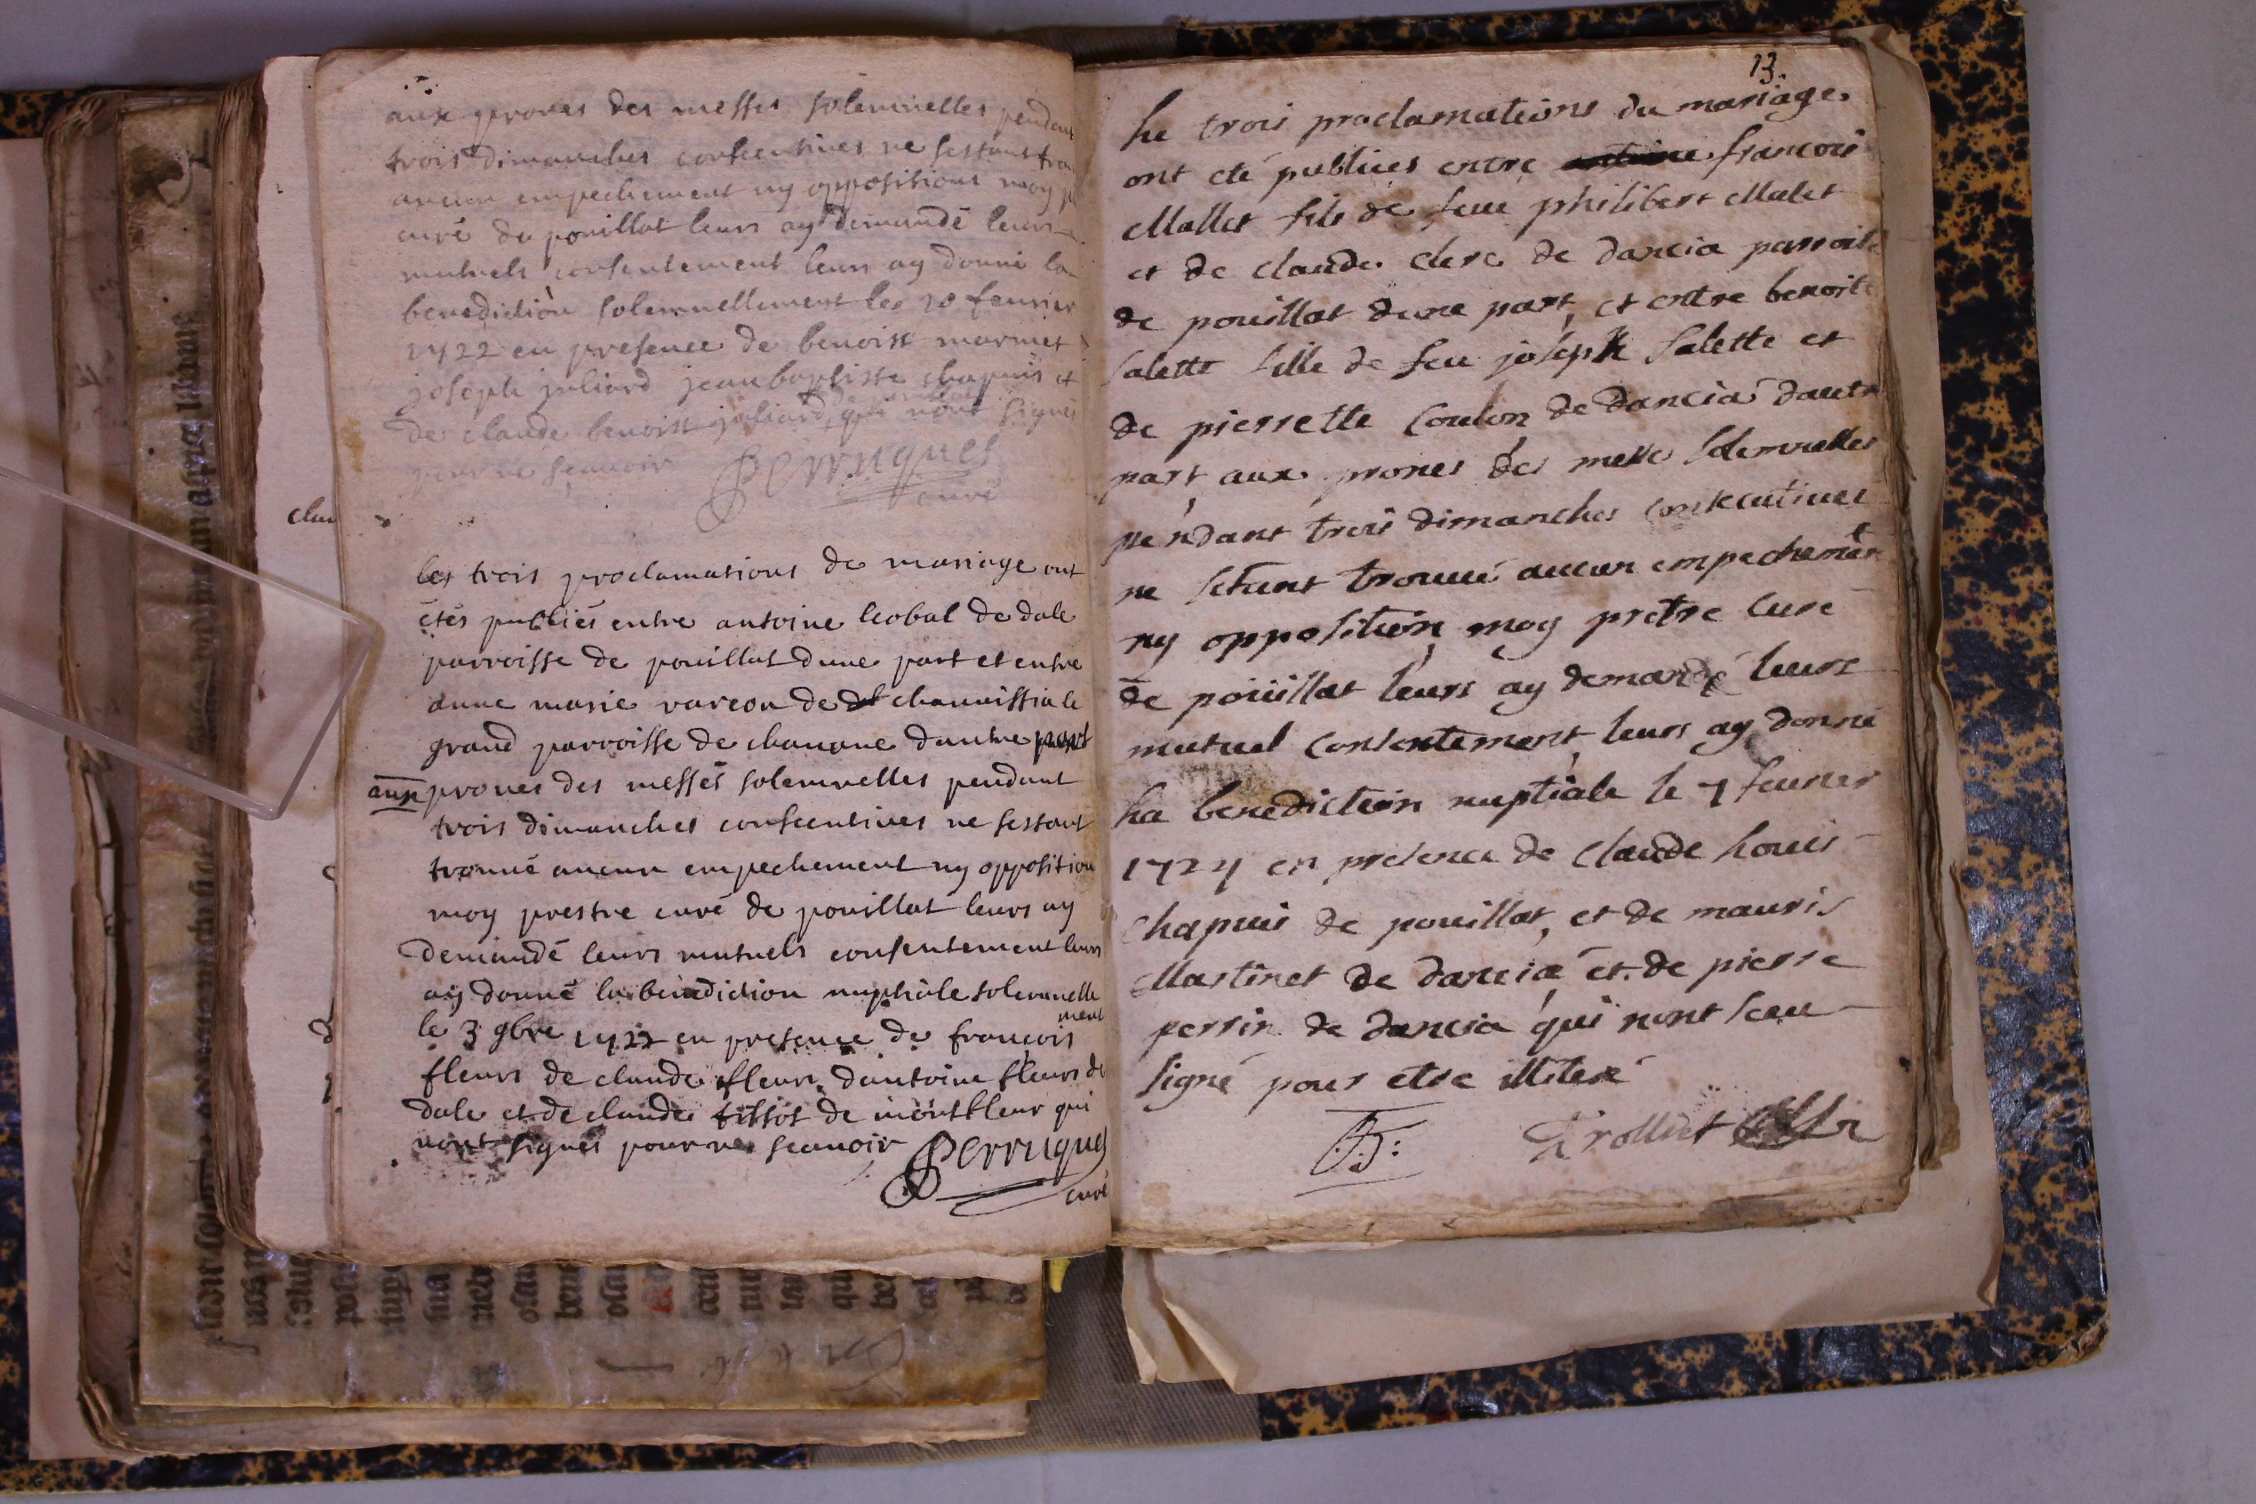 aux prones des messes solemnelles pendant
trois dimanches consecutives ne sestant
aucun empechement ny oppositions moy
curé de pouillat leurs ay demandé leurs
mutuels consentement leurs ay donné la
benediction solemnellement le 10 feurier
1722 en presence de benoist marmet
joseph juliard jean baptiste chapuis et
de claude benoist juliard qui nont signés
pour ne sçauoir Perruques
curé
les trois proclamations de mariage ont
étés publiés entre antoine leobal de dale
parroisse de pouillat dune part et entre
anne marie varcon de chauuissia le
grand parroisse de chauane dautre part
aux prones des messes solemnelles pendant
trois dimanches consecutives ne sestant
trouué aucun empechement ny opposition
moy prestre curé de pouillat leurs ay
demandé leurs mutuels consentement leurs
ay donné la benediction nuptiale solemnelle
ment
le 3 gbre 1722 en presence de françois
fleurs de claude fleurs dantoine fleurs de
dale et de claude tissot de montfleur qui
nont signés pour ne scauoir Perruques
curé
13.
he trois proclamations du mariage
ont eté publiees entre francois
Mallet fils de feue philibert Malet
et de claude clerc de dancia
de pouillat dune part, et entre benoite
salette fille de feu joseph salette et
de pierrette coulon de dancia dautre
part aux prones des messe solemnelles
pendant trois dimanches consecutiues
ne setant trouué aucun empechement
ny opposition moy pretre curé
de poüillat leurs ay demandé leurs
mutuel consentement leurs ay donné
la benediction nuptiale le 7 feurier
1724 en presence de claude houis
chapuis de pouillat, et de mauris
Martinet de dancia et de pierre
perrin de dancia qui nont sceu
signé pour etre illiteré
Trolliet